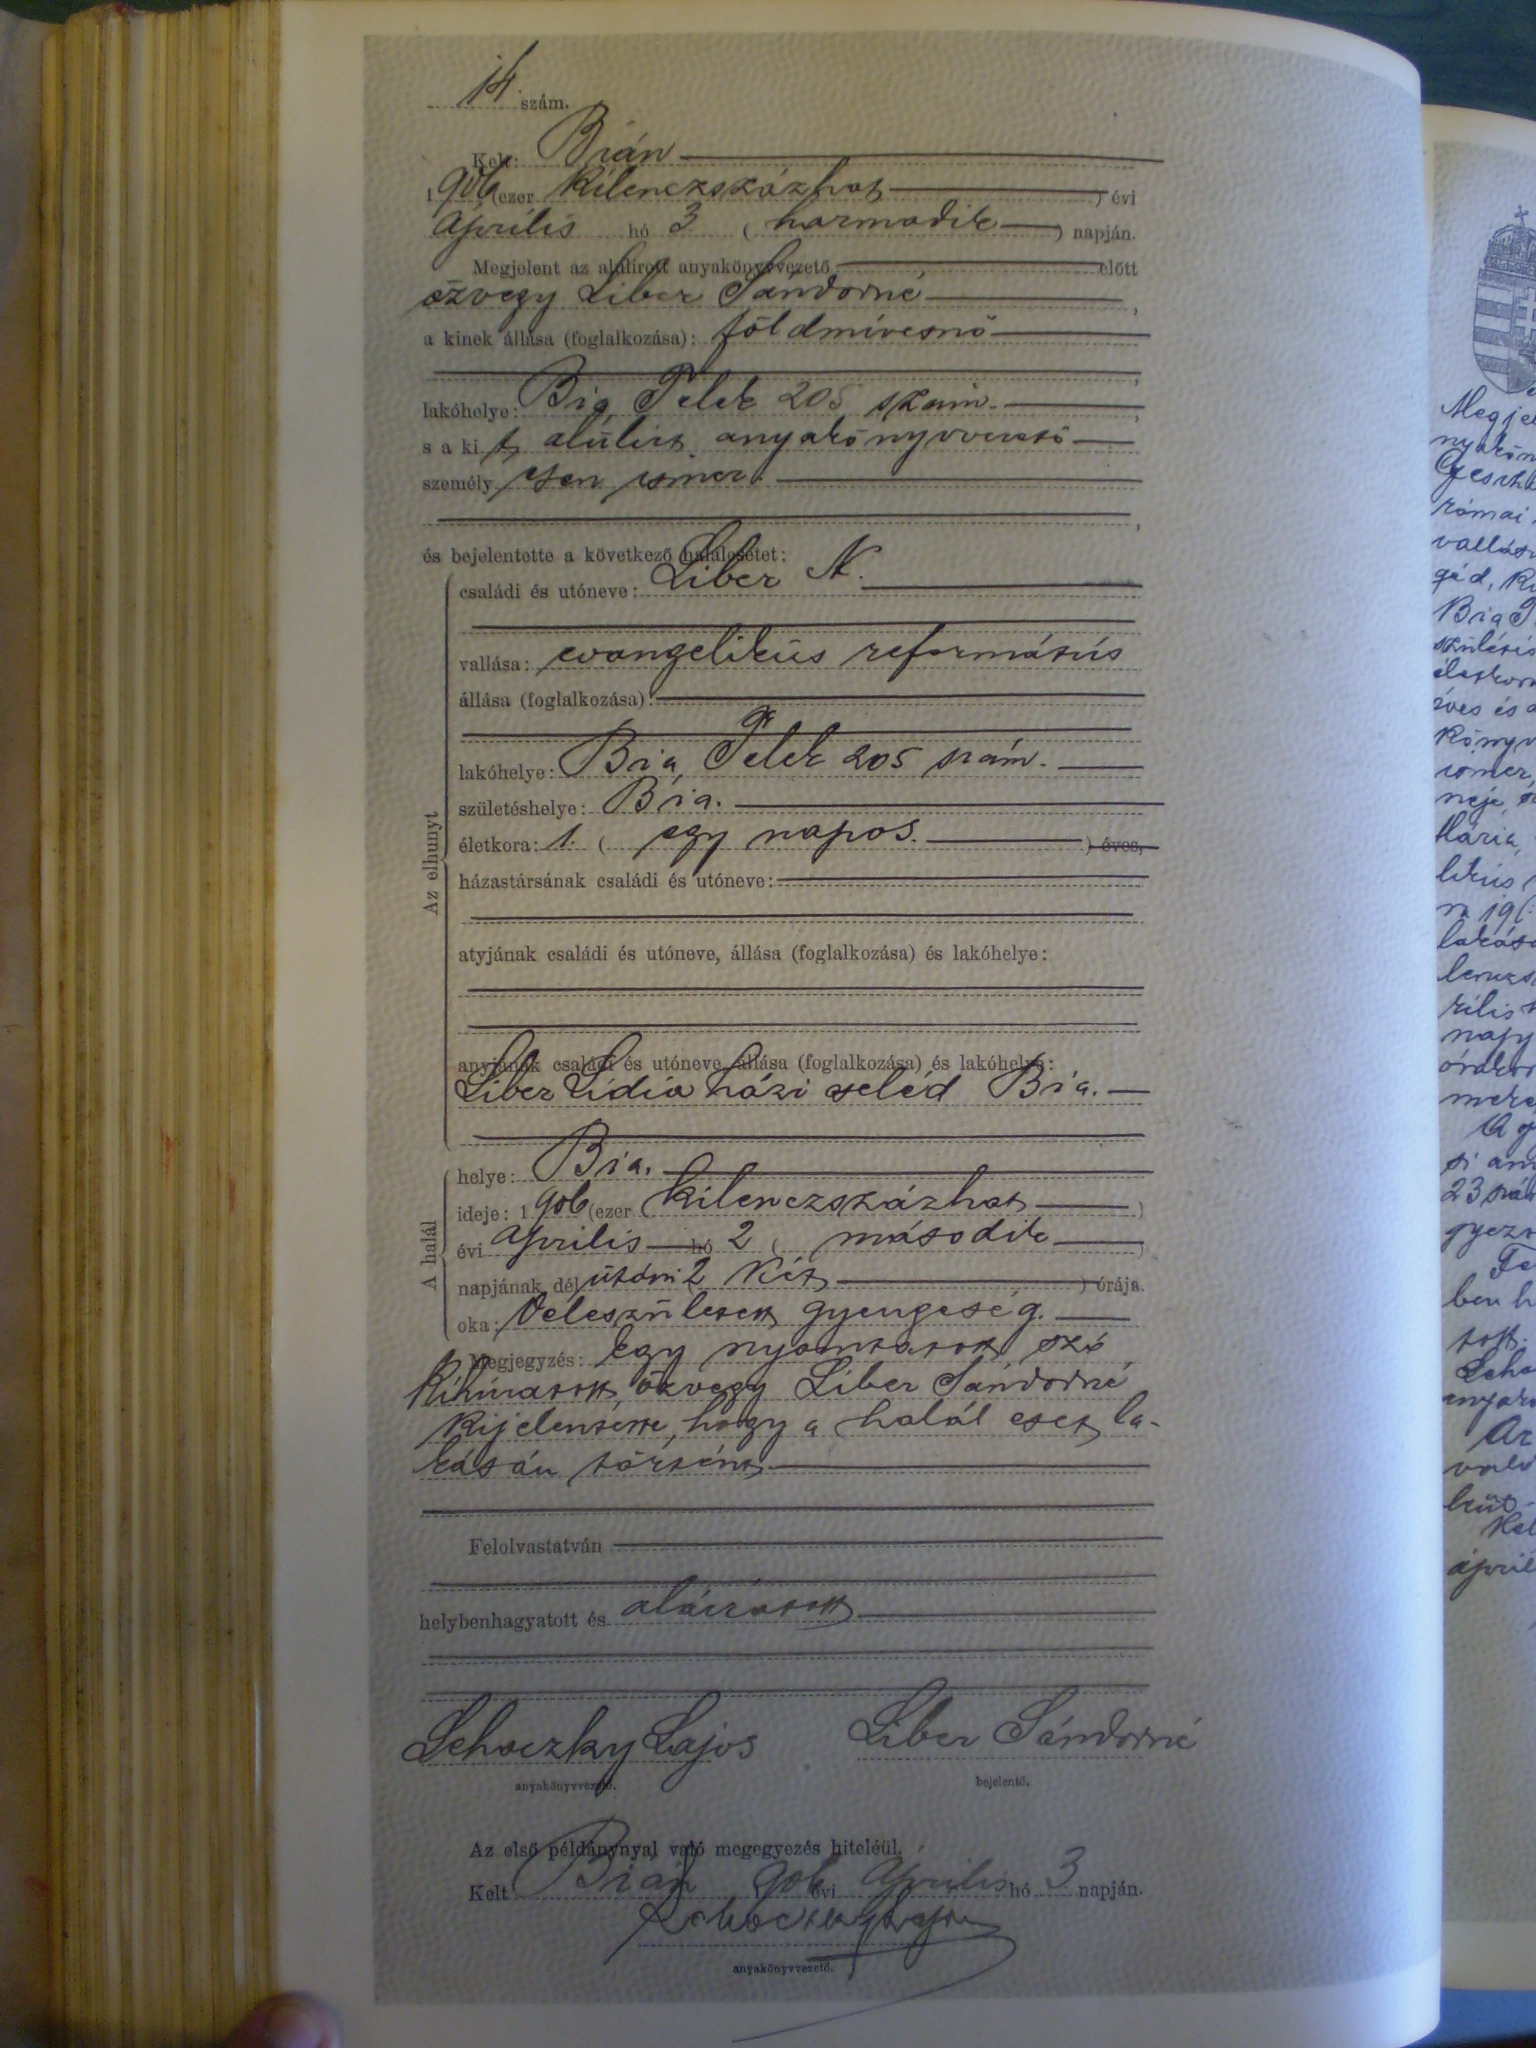 14. szám.
Kelt: Bián
1906 (ezer kilenczszázhat) évi
április hó 3 (harmadik) napján.
Megjelent az alulirott anyakönyvvezető előtt
özvegy Liber Sándorné,
a kinek állása (foglalkozása): földmívesnő
lakóhelye: Bia, Telek 205 szám.
s a kit alúlirt anyakönyvvezető
személyesen ismer.
és bejelentette a következő halálesetet:
Az elhunyt
családi és utóneve: Liber N.
vallása: evangelikus református
állása (foglalkozása):
lakóhelye: Bia, Telek 205 szám.
születéshelye: Bia.
életkora: 1. (egy napos.) éves,
házastársának családi és utóneve:
atyjának családi és utóneve, állása (foglalkozása) és lakóhelye:
anyjának családi és utóneve, állása (foglalkozása) és lakóhelye:
Liber Lidia házi cseléd Bia.
A halál
helye: Bia.
ideje: 1906 (ezer kilenczszázhat)
évi április hó 2 (második)
napjának délutáni 2 (két) órája.
oka: Veleszületett gyengeség.
Megjegyzés: Egy nyomtatott szó
kihúzatott, özvegy Liber Sándorné
kijelentette, hogy a halál eset la-
kásán történt.
Felolvastatván
helybenhagyatott és aláíratott
Lehoczky Lajos Liber Sándorné
anyakönyvvezető. bejelentő.
Az első példánynyal való megegyezés hiteléül.
Kelt Bián 906 évi április hó 3 napján.
Lehoczky Lajos
anyakönyvvezető.